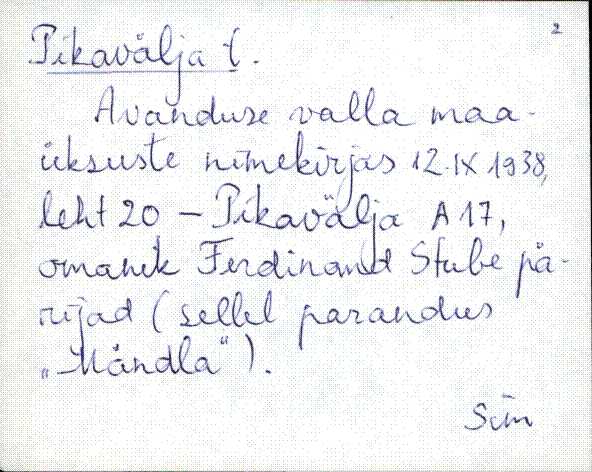 2
Pikavälja t.
Avanduse valla maa-
üksuste nimekirjas 12.IX 1938,
leht 20 – Pikavälja A 17,
omanik Ferdinand Stube pä-
rijad (sellel parandus
„Mändla“).
Sim